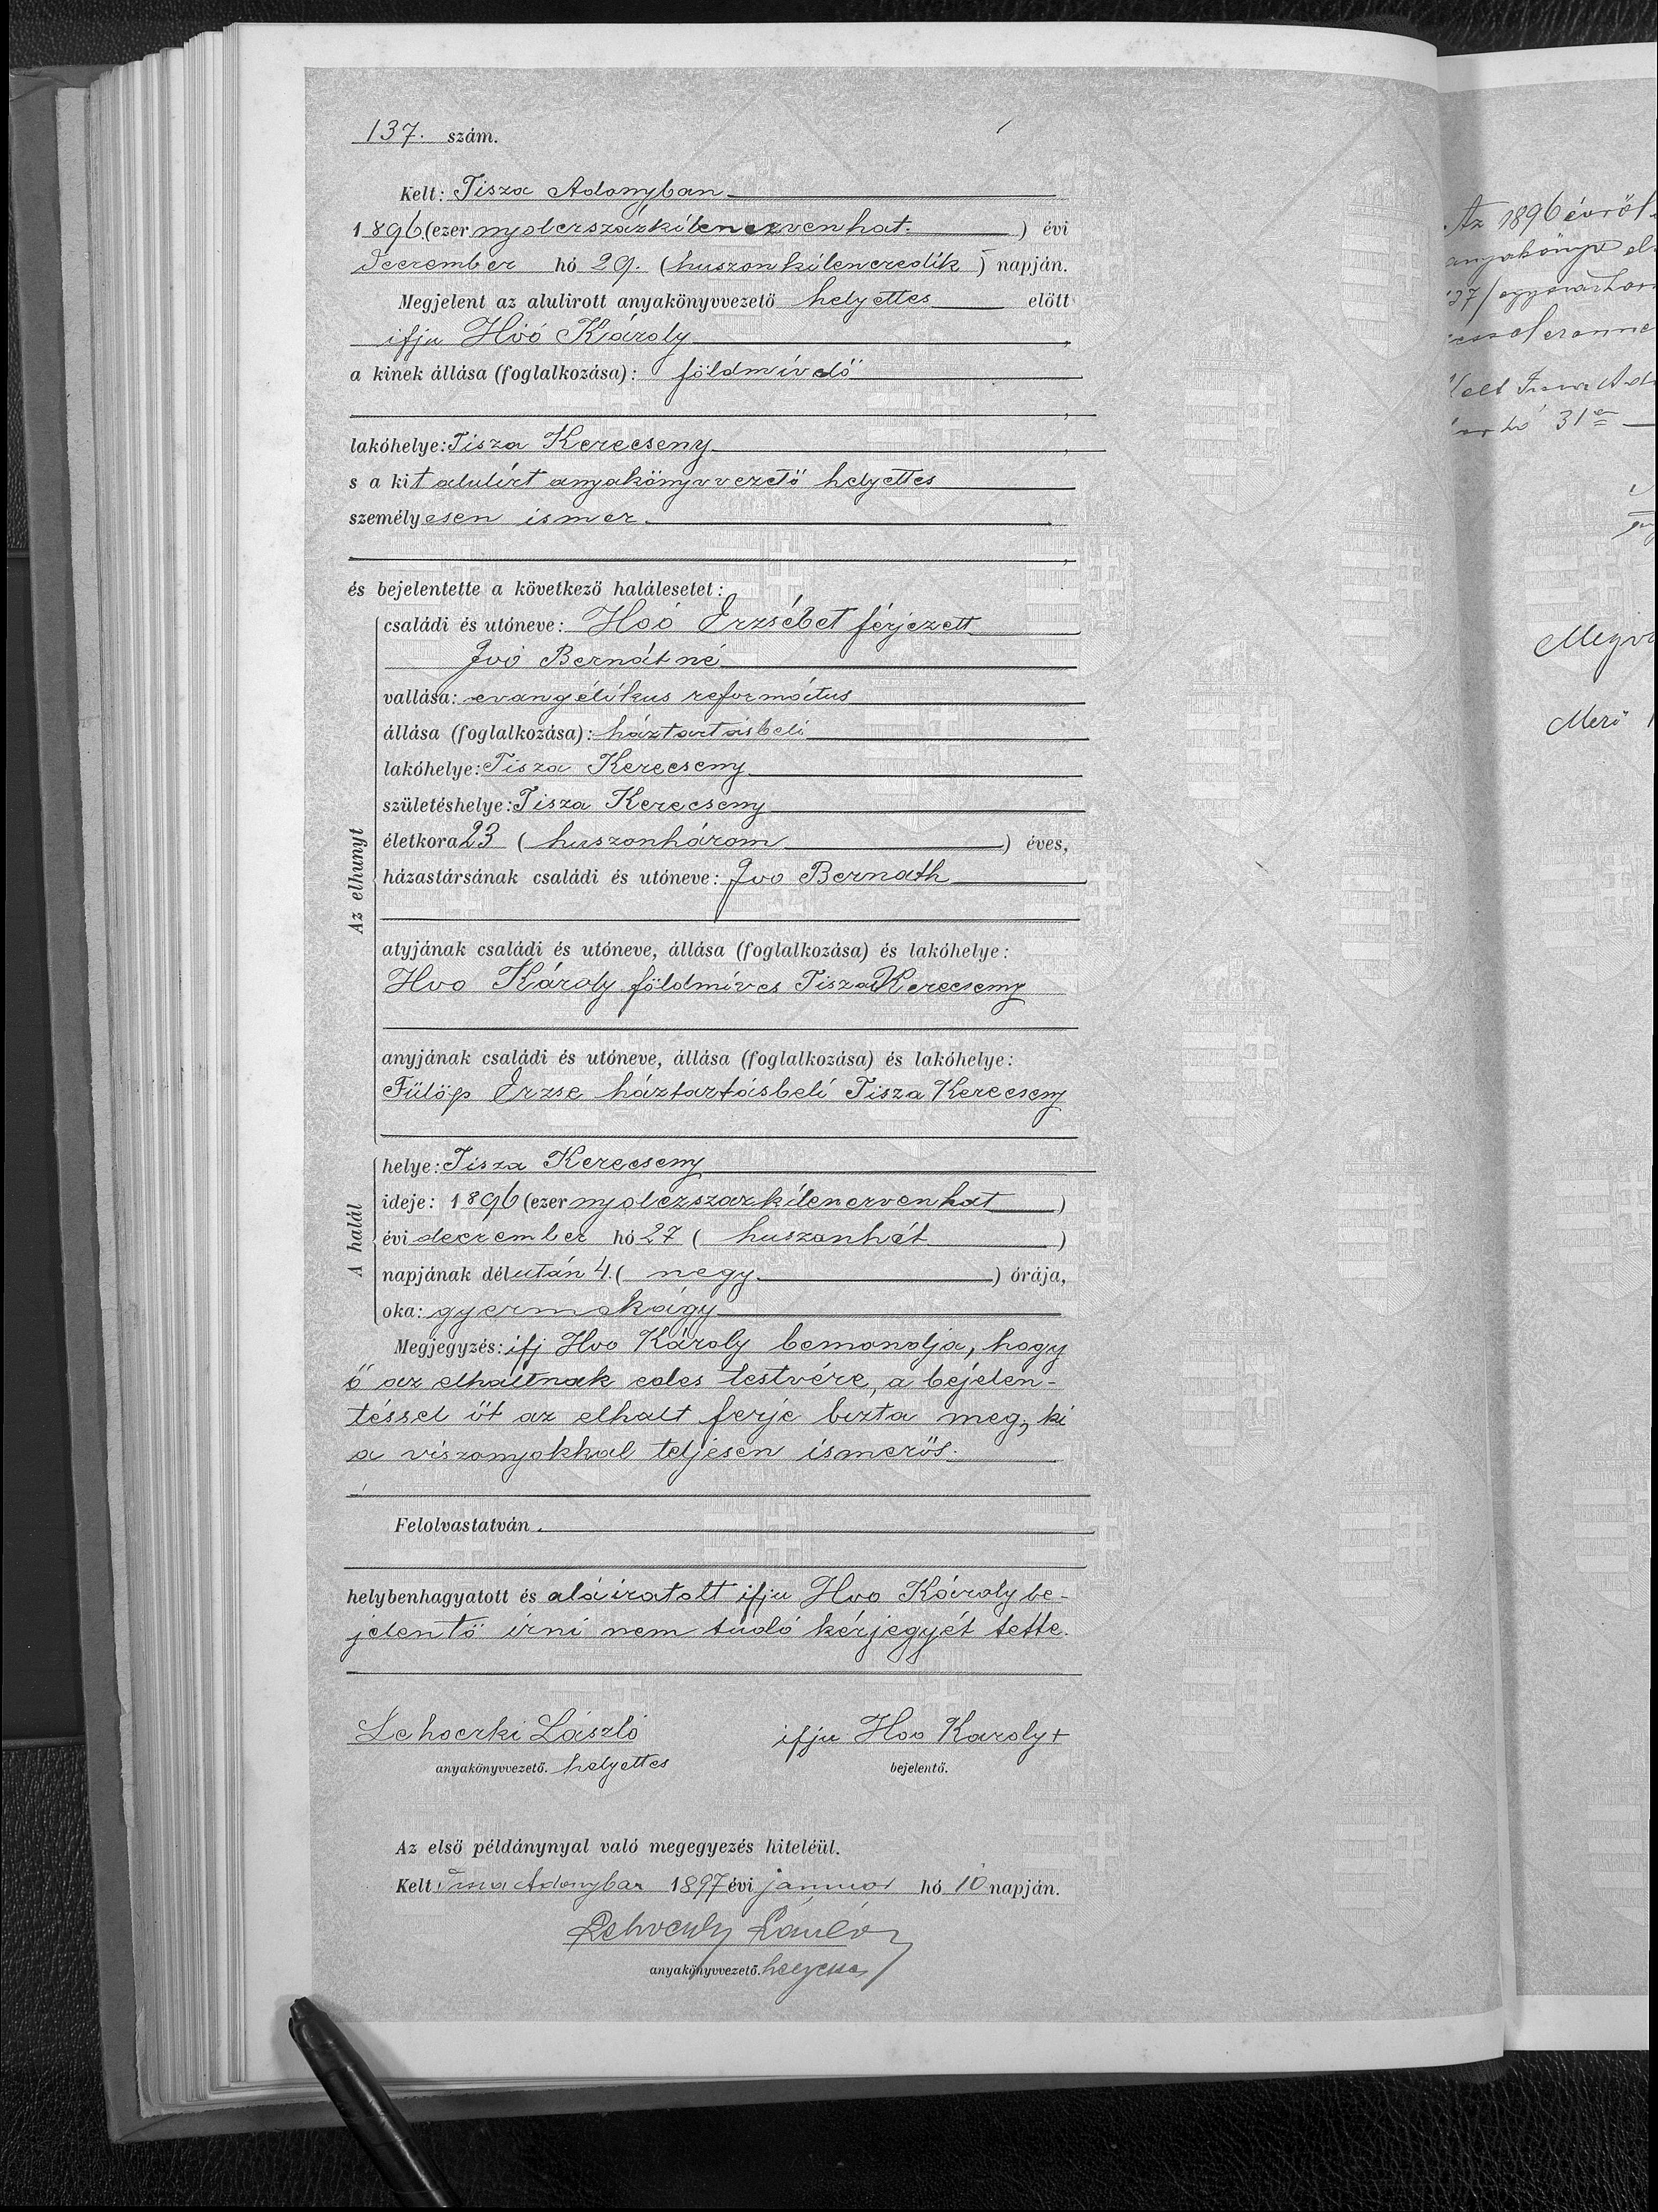 137. szám.
Kelt: Tisza Adonyban
1896. (ezer nyolczszázkilenczvenhat. ) évi
Deczember hó 29. (huszonkilenczedik) napján.
Megjelent az alulirott anyakönyvvezető helyettes előtt
ifju Hóó Károly,
a kinek állása (foglalkozása): földmívelő
,
lakóhelye: Tisza Kerecseny,
s a kit alulírt anyakönyvvezető helyettes
személyesen ismer.
,
és bejelentette a következő halálesetet:
Az elhunyt
családi és utóneve: Hoó Erzsébet férjezett
Ivó Bernátné
vallása: evangélikus református
állása (foglalkozása): háztartásbeli
lakóhelye: Tisza Kerecseny
születéshelye: Tisza Kerecseny
életkora 23 ( huszonhárom ) éves,
házastársának családi és utóneve: Ivo Bernath
atyjának családi és utóneve, állása (foglalkozása) és lakóhelye:
Hoo Károly földmíves Tisza Kerecseny
anyjának családi és utóneve, állása (foglalkozása) és lakóhelye:
Fülöp Erzse háztartásbeli Tisza Kerecseny
A halál
helye: Tisza Kerecseny
ideje: 1896 (ezer nyolczszazkilenczvenhat )
évi deczember hó 27 ( huszonhét )
napjának délután 4. ( negy ) órája,
oka: gyermekágy
Megjegyzés: ifj Hoo Károly bemondja, hogy
ő az elhaltnak edes testvére, a bejelen-
téssel őt az elhalt ferje bizta meg, ki
a viszonyokkal teljesen ismerős.
Felolvastatván.
helybenhagyatott és aláiratott ifju Hoo Károly be-
jelentő irni nem tudó kézjegyét tette.
Lehoczki László ifju Hoo Karoly +
anyakönyvvezető. helyettes bejelentő.
Az első példánynyal való megegyezés hiteléül.
Kelt Tisza Adonyban 1897 évi január hó 10 napján.
Lehoczky László
anyakönyvvezető. helyettes
Az 1896 évről
anyakönyv
Kelt Tisza Ad
hó 31